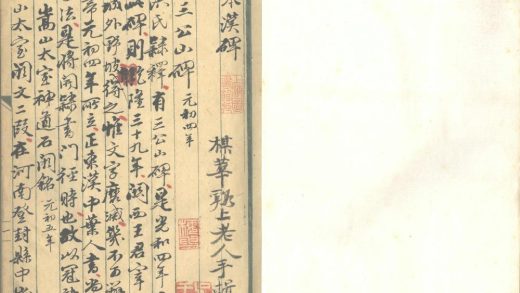 本漢碑
上老人手
三公山碑 元初四年
洪氏隸釋有三公山碑是光和四年
此碑則乾隆三十九年關西王君宰
城外野坡得之惟文字磨滅幾不可
帝元初四年所立正東漢中葉人書尚
法是將開隸書門徑時也故以冠
嵩山太室神道石闕銘 元初五年
山太室闕文二段在河南登封縣中